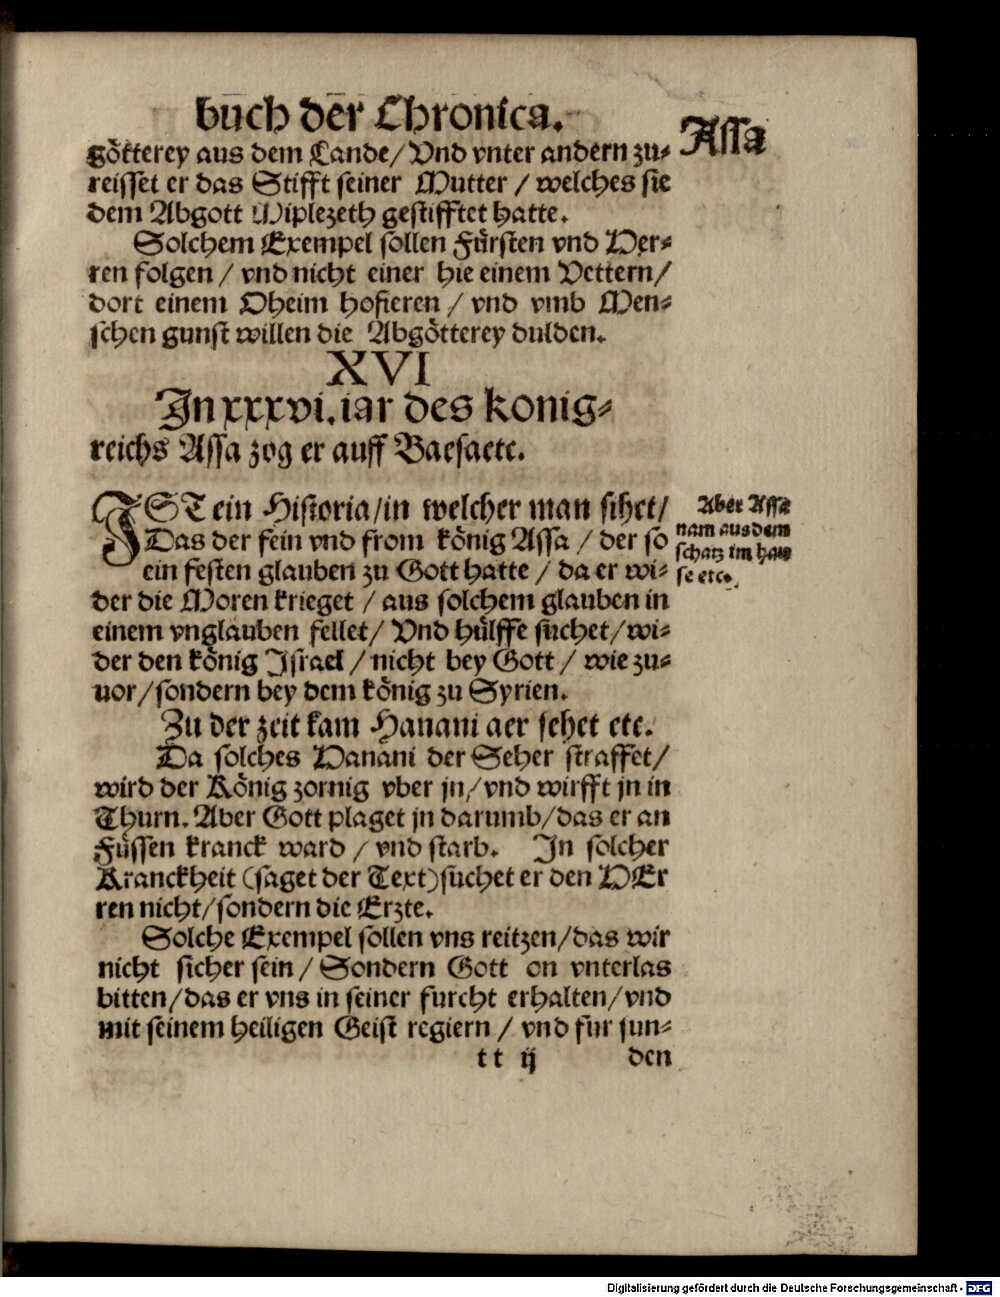 buch der Chronica.
Assa
götterey aus dem Lande/ Vnd vnter andern zu⸗
reisset er das Stifft seiner Mutter / welches sie
dem Abgott Miplezeth gestifftet hatte.
Solchem Exempel sollen Fürsten vnd Her⸗
ren folgen / vnd nicht einer hie einem Vettern/
dort einem Oheim hofieren / vnd vmb Men⸗
schen gunst willen die Abgötterey dulden.
XVI
In xxxvi. iar des konig⸗
reichs Assa zog er auff Baesaetc.
IST ein Historia/in welcher man sihet/
Das der fein vnd from könig Assa / der so
ein festen glauben zu Gott hatte / da er wi⸗
der die Moren krieget / aus solchem glauben in
einem vnglauben fellet/ Vnd hülffe suchet/wi⸗
der den könig Israel / nicht bey Gott / wie zu⸗
uor/sondern bey dem könig zu Syrien.
Aber Assa
nam aus dem
schatz im hau
se etc.
Zu der zeit kam Hanani der sehet etc.
Da solches Hanani der Seher straffet/
wird der König zornig vber jn/vnd wirfft jn in
Thurn. Aber Gott plaget jn darumb/das er an
Füssen kranck ward / vnd starb. In solcher
Kranckheit (saget der Text)suchet er den HEr
ren nicht/sondern die Erzte.
Solche Exempel sollen vns reitzen/das wir
nicht sicher sein / Sondern Gott on vnterlas
bitten/das er vns in seiner furcht erhalten/vnd
mit seinem heiligen Geist regiern / vnd fur sun⸗
tt ij den
Digitalisierung gefördert durch die Deutsche Forschungsgemeinschaft - DFG